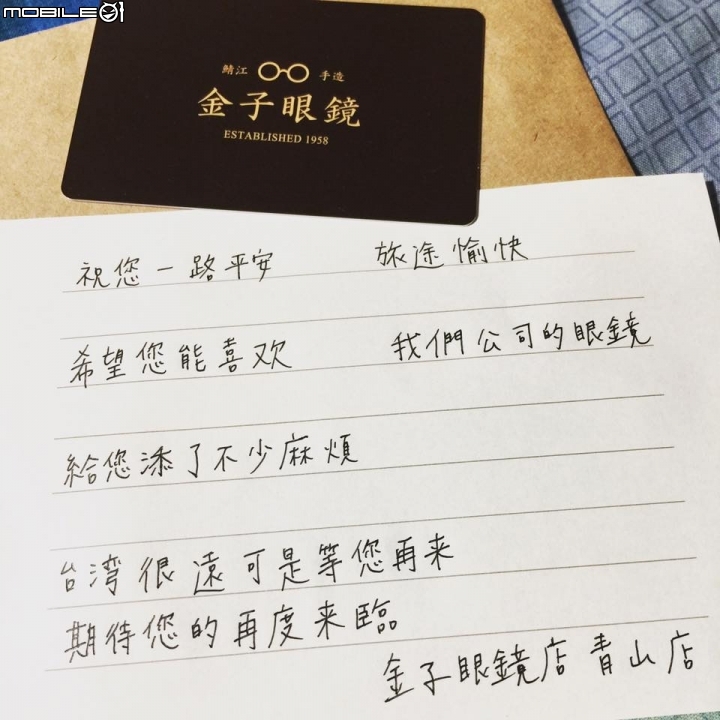 MOBILE01
鯖江 手造
金子眼鏡
ESTABLISHED 1958
祝您一路平安 旅途愉快
希望您能喜欢 我們公司的眼鏡
給您添了不少麻煩
台湾很遠可是等您再来
期待您的再度来臨
金子眼鏡店 青山店